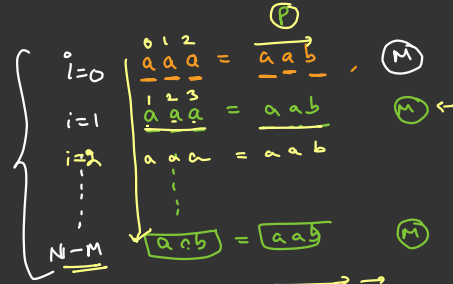 P
0 1 2
i=0 a a a = a a b , M
1 2 3
i=1 a a a = a a b M ←
i=2 a a a = a a b
N-M a a b = a a b M